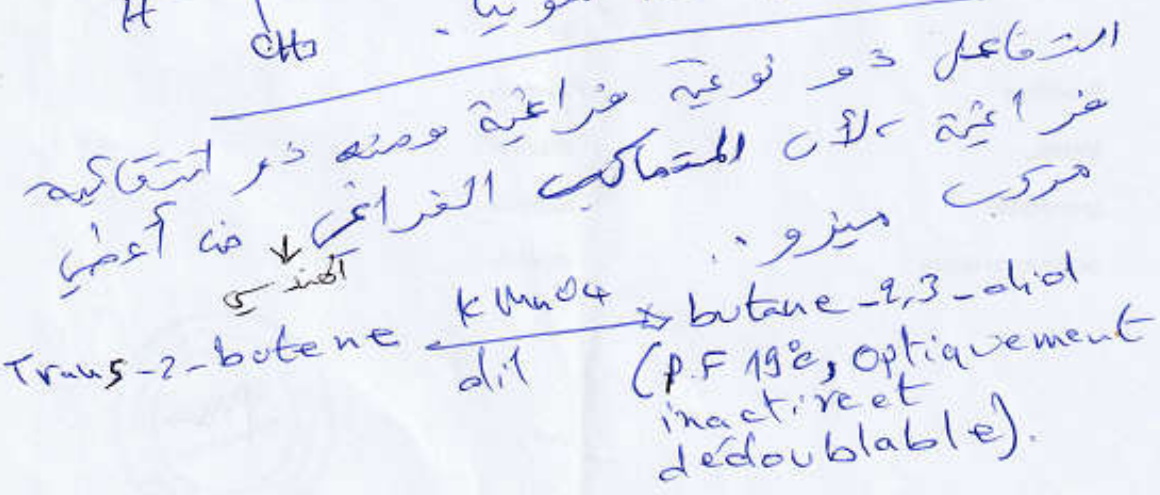 H
CH3
التفاعل ذو نوعية فراغية ومنه ذو انتقائية
فراغية لأن المتماكب الفراغي من أعطى
↓
الهندسي
مركب ميزو.
Trans-2-butene KMnO4 dil → butane-2,3-diol
(P.F 19°c, optiquement
inactive et
dédoublable).